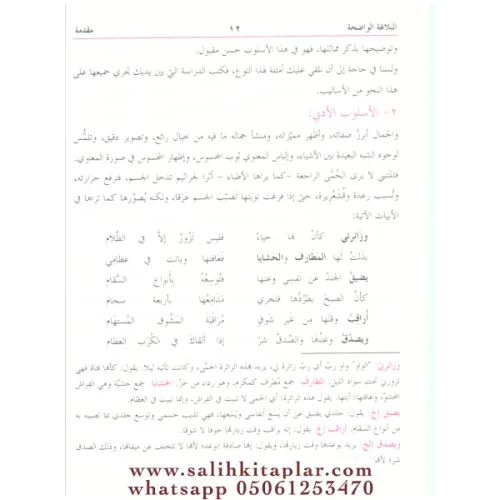 البلاغة الواضحة ١٢ مقدمة
وتوضيحها بذكر مماثلها، فهو في هذا الأسلوب حسن مقبول.
ولسنا في حاجة إلى أن نلقي عليك أمثلة لهذا النوع، فكتب الدراسة التي بين يديك تجري جميعها على
هذا النحو من الأساليب.
٢- الأسلوب الأدبي:
والجمال أبرز صفاته، وأظهر مميزاته، ومنشأ جماله ما فيه من خيال رائع، وتصوير دقيق، وتلمُّس
لوجوه الشبه البعيدة بين الأشياء، وإلباس المعنوي ثوب المحسوس، وإظهار المحسوس في صورة المعنوي.
فالمتنبي لا يرى الحُمَّى الراجعة -كما يراها الأطباء - أثرا لجراثيم تدخل الجسم، فترفع حرارته،
وتُسبب رعدة وقُشَعْريرة، حتى إذا فرغت نوبتها تصبَّب الجسم عَرَقا، ولكنه يُصوّرها كما تراها في
الأبيات الآتية:
وزَائرتي كأنّ بها حياءً فليس تَزُورُ إلاَّ في الظَّلام
بذَلتُ لها المطارف والحَشَايا فعافتها وباتت في عظامي
يضيقُ الجلدُ عن نفسي وعنها فتُوسعُهُ بأنواع السَّقام
كأنَّ الصبحَ يطرُدُها فتجري مَدَامِعُها بأربعة سجام
أراقبُ وقتَها من غير شوقٍ مُرَاقَبَةَ المَشُوق المُسْتهام
ويصدُقُ وعدُها والصِّدقُ شرٌّ إذا ألقاكَ في الكُرَب العظام
وزائرتي: "الواو" واو رب، أي رب زائرة لي، يريد بهذه الزائرة الحمى، وكانت تأتيه ليلا. يقول: كأنها فتاة فهي
تزورني تحت سواد الليل. المطارف: جمع مطرف كمكرم، وهو رداء من خز. الحشايا: جمع حشيّة وهي الفراش
المحشو. وعافتها: أبتها. يقول هذه الزائرة: أي الحمى لا تبيت في الفراش، وإنما تبيت في العظام.
يضيق إلخ: يقول: جلدي يضيق عن أن يسع أنفاسي ويسعها، فهي تذيب جسمي وتوسع جلدي بما تصيبه به
من أنواع السقام. أراقب إلخ: يقول: إنه يراقب وقت زيارتها خوفا لا شوقا.
ويصدق إلخ: يريد بوعدها وقت زيارتها، ويقول: إنها صادقة الوعد؛ لأنها لا تتخلف عن ميقاتها، وذلك الصدق
شر؛ لأنها
www.salihkitaplar.com
whatsapp 05061253470